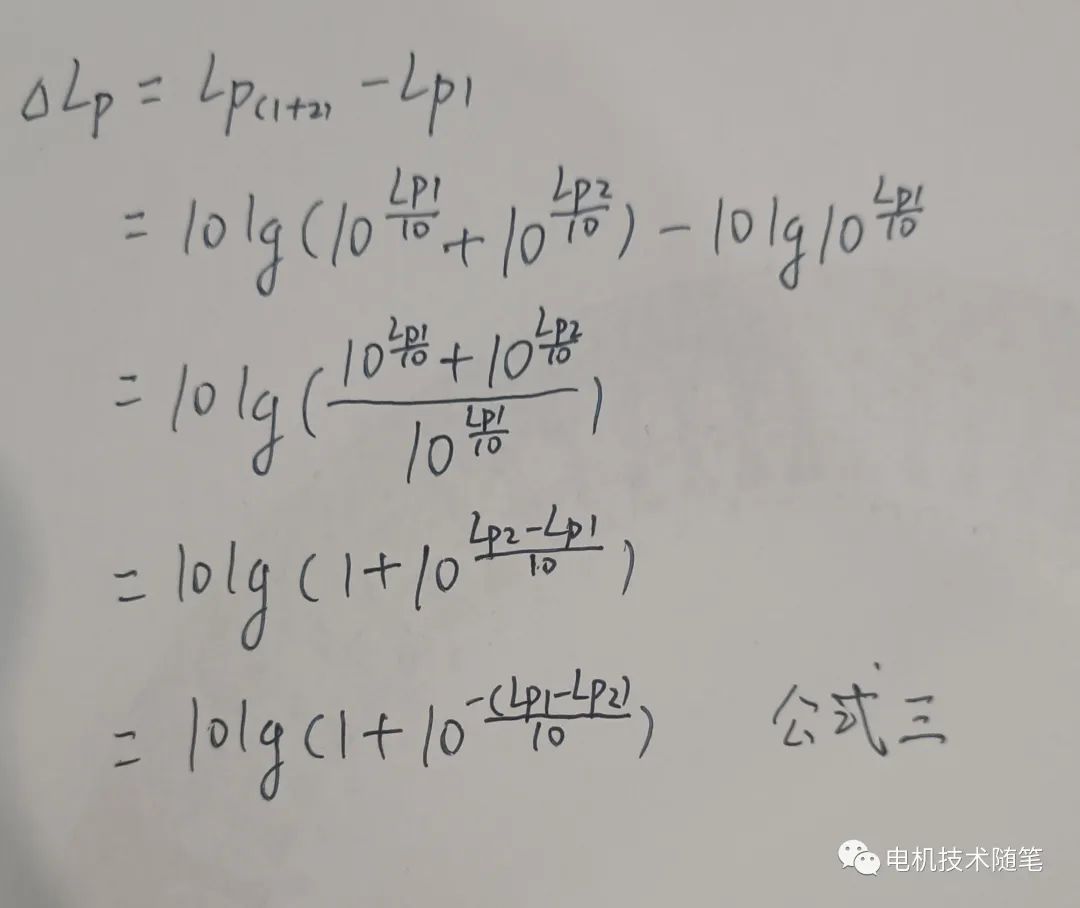 ΔLp = Lp(1+2) - Lp1
= 10lg(10^(Lp1/10) + 10^(Lp2/10)) - 10lg10^(Lp1/10)
= 10lg((10^(Lp1/10) + 10^(Lp2/10))/10^(Lp1/10))
= 10lg(1+10^((Lp2-Lp1)/10))
= 10lg(1+10^(-(Lp1-Lp2)/10)) 公式三
电机技术随笔